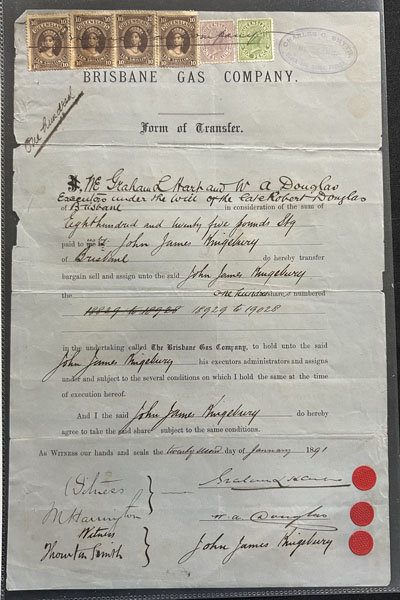 QUEENSLAND QUEENSLAND QUEENSLAND QUEENSLAND
10 10 10 10 10 10 10 10
CHARLES O.
BRISBANE GAS COMPANY.
One hundred
Form of Transfer.
I, We Graham L Hart and W A Douglas
Executors under the Will of the late Robert Douglas
of Brisbane in consideration of the sum of
Eight hundred and twenty five pounds Stg
paid to me by John James Kingsbury
of Brisbane do hereby transfer
bargain sell and assign unto the said John James Kingsbury
the One hundred shares numbered
18829 to 18928 18929 to 19028
in the undertaking called The Brisbane Gas Company, to hold unto the said
John James Kingsbury his executors administrators and assigns
under and subject to the several conditions on which I hold the same at the time
of execution hereof.
And I the said John James Kingsbury do hereby
agree to take the said share subject to the same conditions.
As Witness our hands and seals the twenty second day of January 1891
Witness Graham L Hart
M Harrington W. A. Douglas
Witness
Thornton Smith John James Kingsbury